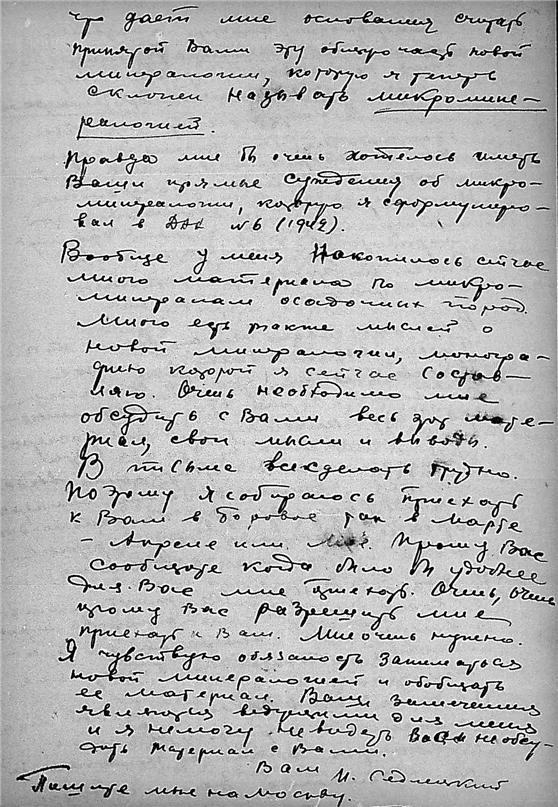 что дает мне основания считать
принятой Вами эту общую часть новой
минералогии, которую я теперь
склонен называть микромине-
ралогией.
Правда мне бы очень хотелось иметь
Ваши прямые суждения об микро-
минералогии, которую я сформулиро-
вал в ДАН №6 (1942).
Вообще у меня накопилось сейчас
много материала по микро-
минералам осадочных пород.
Много есть также мыслей о
новой минералогии, моногра-
фию которой я сейчас состав-
ляю. Очень необходимо мне
обсудить с Вами весь этот мате-
риал, свои мысли и выводы.
В письме все сделать трудно.
Поэтому я собираюсь приехать
к Вам в Боровое так в марте
- Апреле или Мае. Прошу Вас
сообщите когда было бы удобнее
для Вас мне приехать. Очень, очень
прошу Вас разрешить мне
приехать к Вам. Мне очень нужно.
Я чувствую обязаность заниматься
новой минералогией и обобщать
ее материал. Ваши замечания
являются ведущими для меня
и я не могу не видеть Вас и не обсу-
дить материал с Вами.
Ваш И. Седлецкий
Пишите мне на Москву.